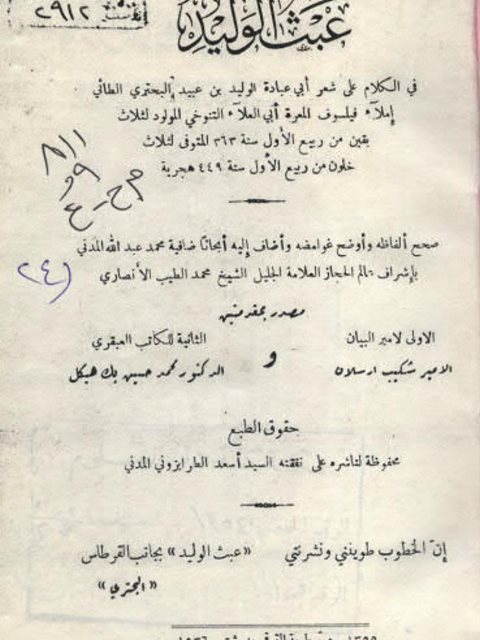 ٢٩١٢
عبث الوليد
في الكلام على شعر أبي عبادة الوليد بن عبيد البحتري الطائي
إملاء فيلسوف المعرة أبي العلاء التنوخي المولود لثلاث
بقين من ربيع الأول سنة ٣٦٣ المتوفى لثلاث
خلون من ربيع الأول سنة ٤٤٩ هجرية
صحح ألفاظه وأوضح غوامضه وأضاف إليه أبحاثا ضافية محمد عبد الله المدني
بإشراف عالم الحجاز العلامة الجليل الشيخ محمد الطيب الأنصاري
(٢٤
مصدر بمقدمتين
الاولى لامير البيان
الامير شكيب ارسلان
و
الثانية للكاتب العبقري
الدكتور محمد حسين بك هيكل
حقوق الطبع
محفوظة لناشره على نفقته السيد أسعد الطرابزوني المدني
إن الخطوب طوينني ونشرنني «عبث الوليد» بجانب القرطاس
«البحتري»